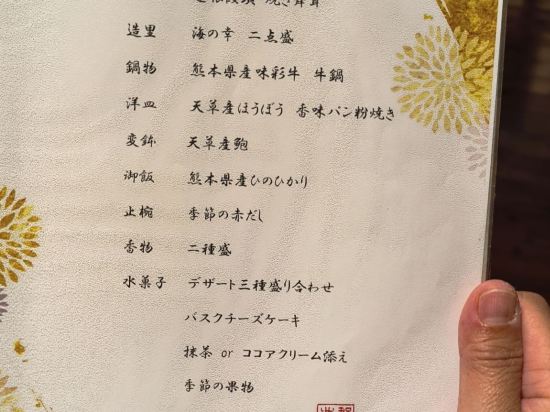 造里 海の幸 二点盛
鍋物 熊本県産味彩牛 牛鍋
洋皿 天草産ほうぼう 香味パン粉焼き
変鉢 天草産鮑
御飯 熊本県産ひのひかり
止椀 季節の赤だし
香物 二種盛
水菓子 デザート三種盛り合わせ
バスクチーズケーキ
抹茶 or ココアクリーム添え
季節の果物